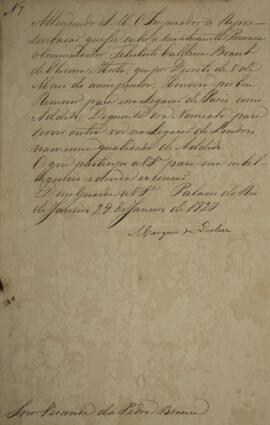 N 7
Attendendo S. M. O Imperador á Repre-
sentação que fez subir a sua Augusta Presença
o Commendador Felisberto Caldeira Brant
de Oliveira Horta, que por Decreto de 8 de
Maio do anno preterito, houve por bem
Remover para sua Legação de Paris como
Addido, Dignando-se o Nomear para
servir outra vez na Legação de Londres,
na mesma qualidade de Addido.
O que participo a V. S.ª para sua intel-
ligencia e devida execução.
Deus Guarde a V. S.ª Palacio do Rio
de Janeiro 29 de Janeiro de 1827
Marquez de Queluz
Snr Visconde da Pedra Branca